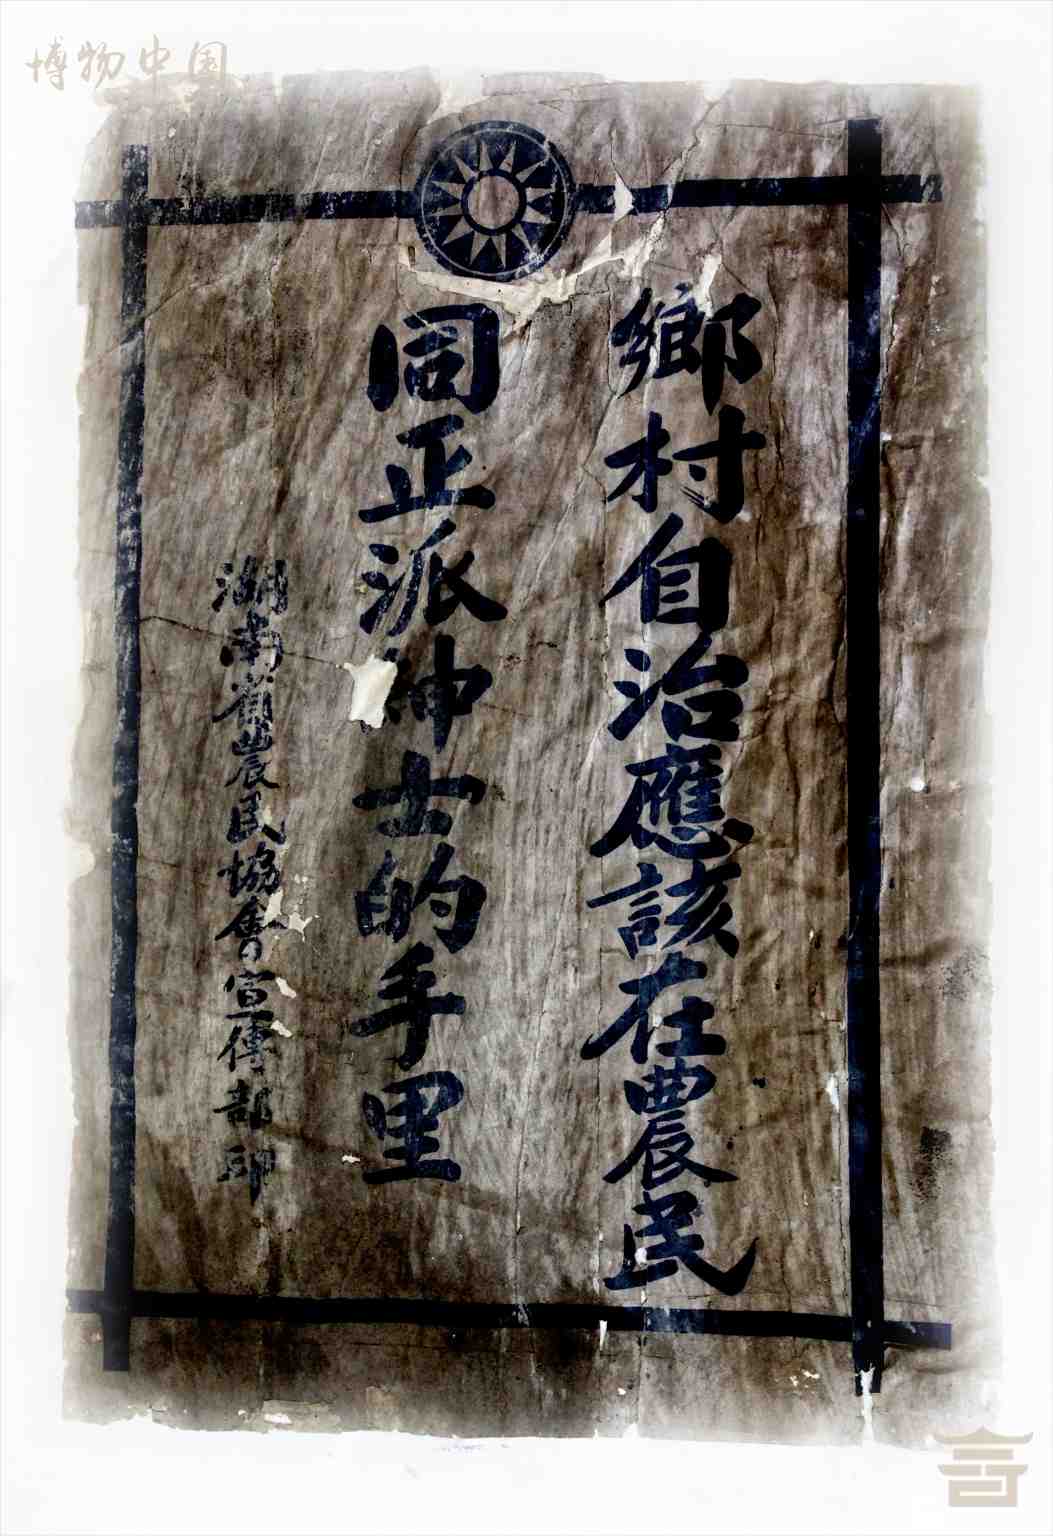 博物中国
鄉村自治應該在農民
同正派紳士的手里
湖南省農民協會宣傳部印